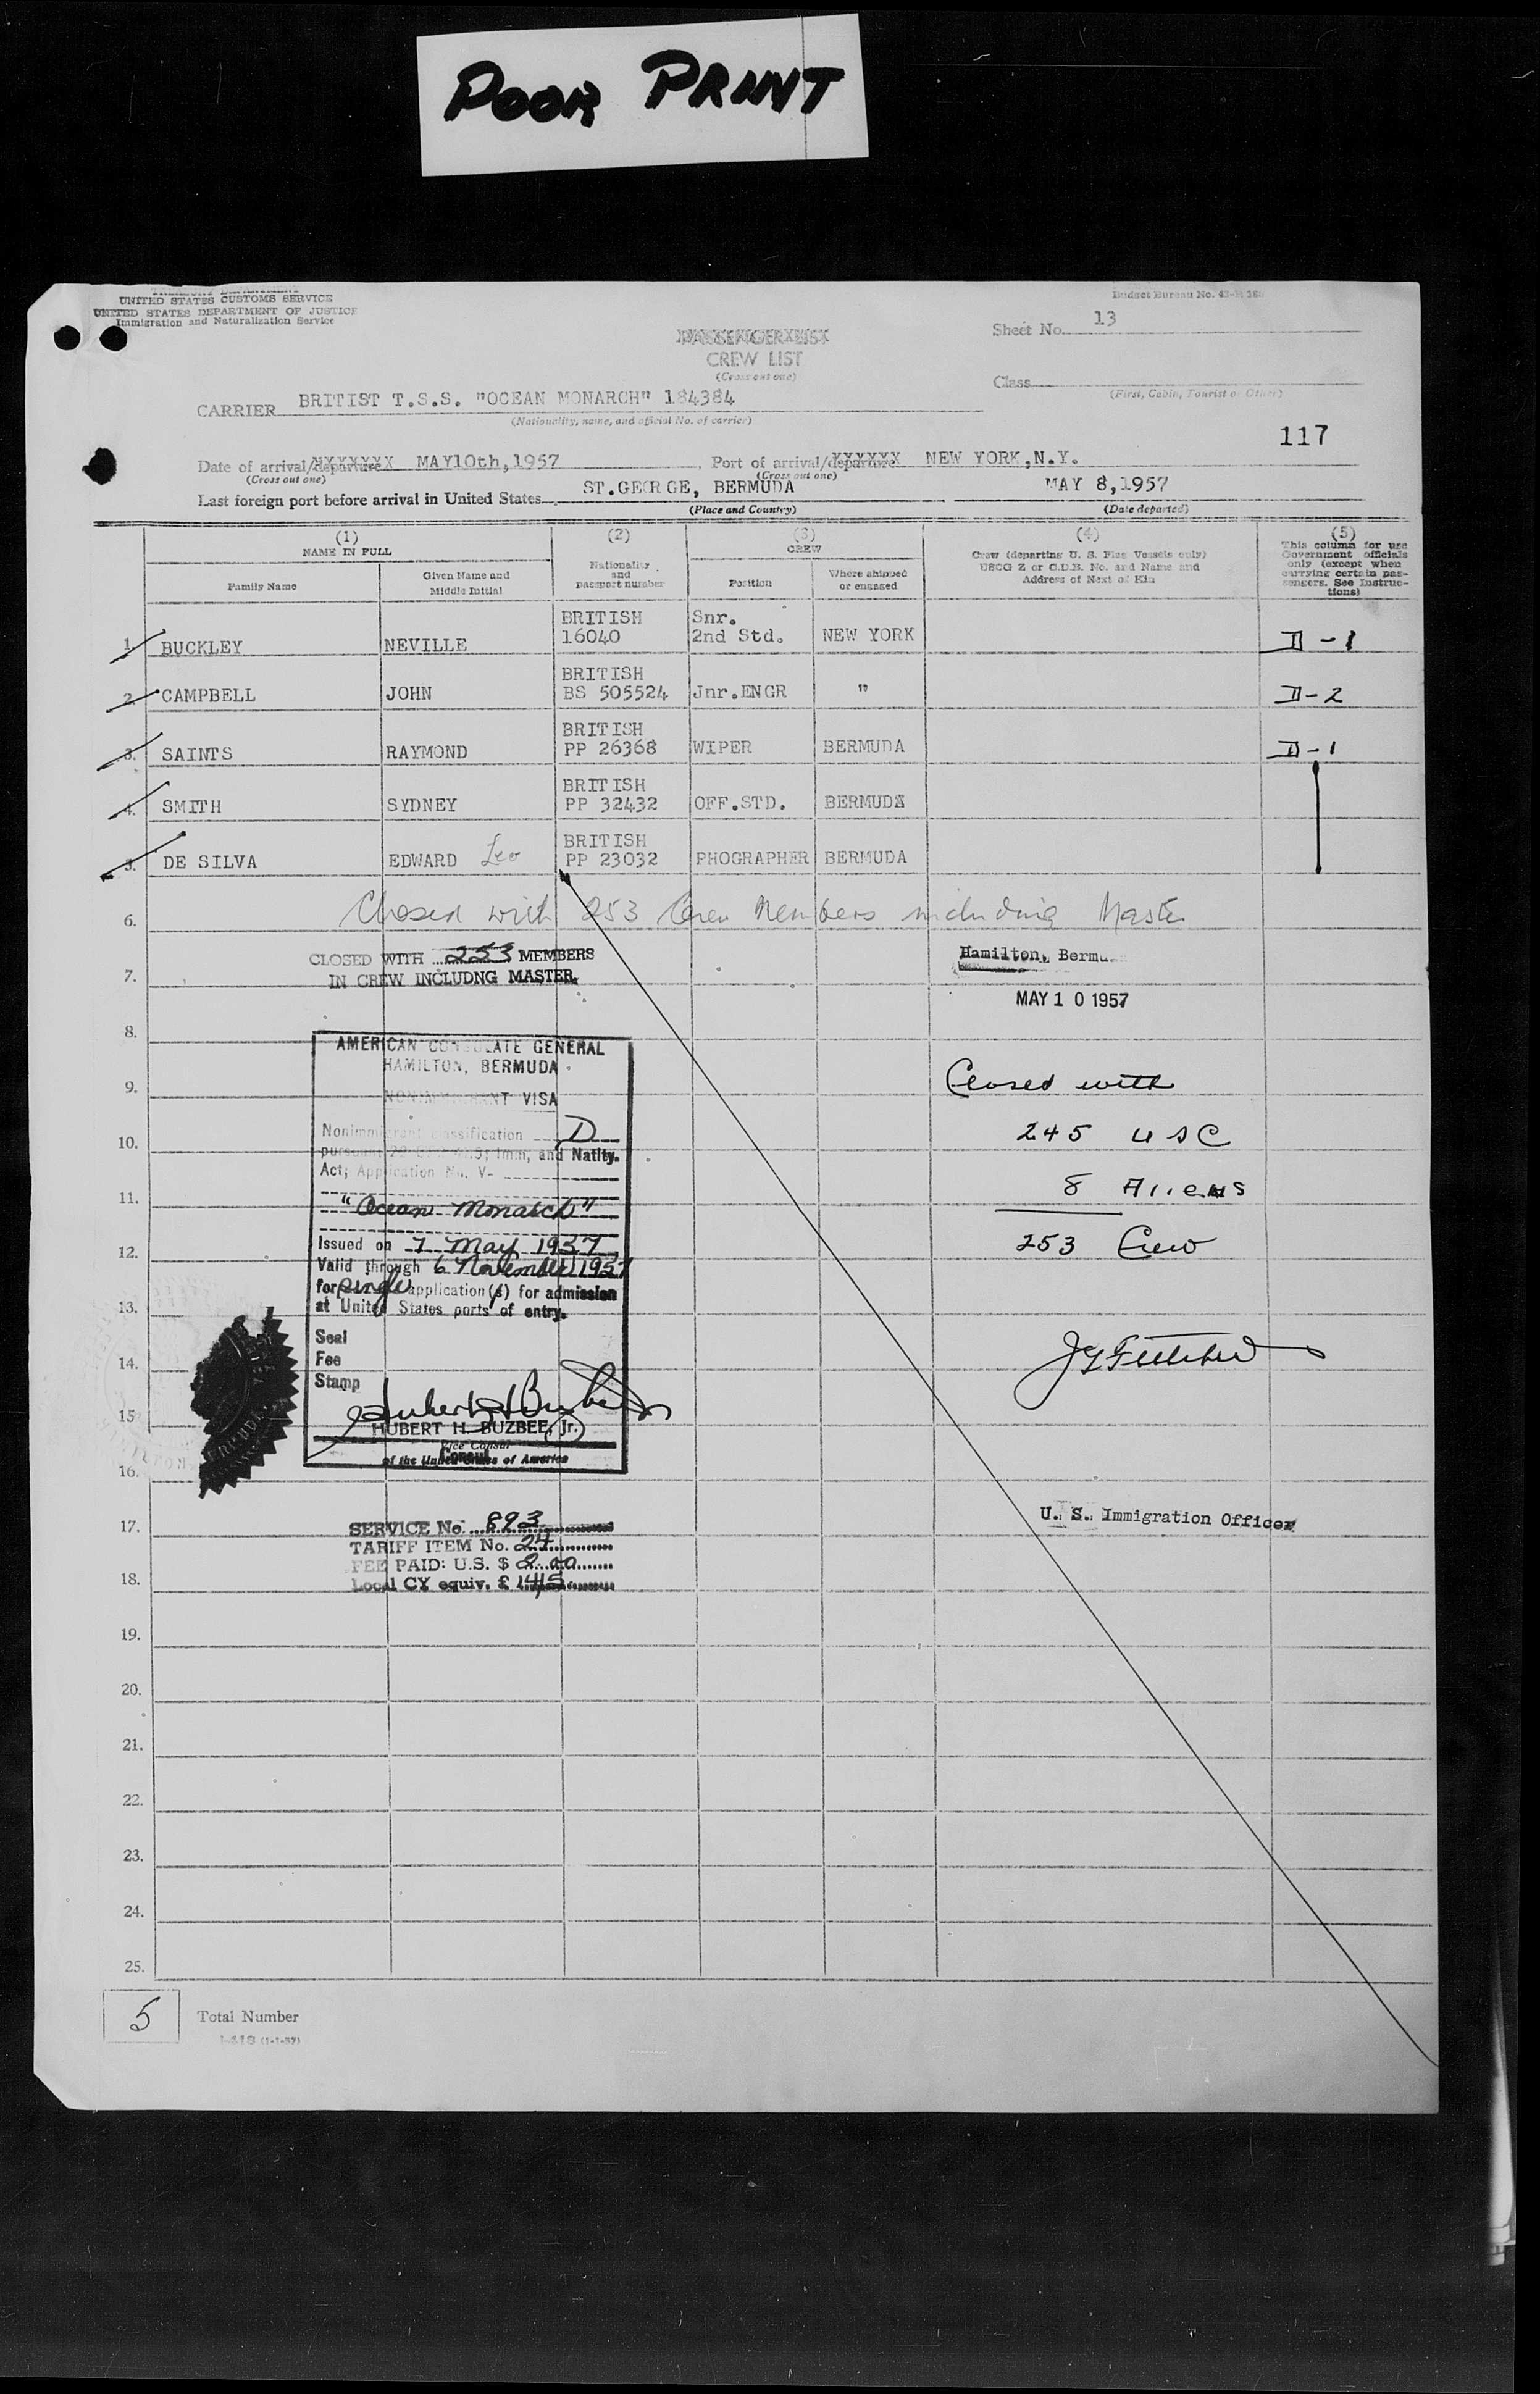 POOR PRINT
UNITED STATES CUSTOMS SERVICE
UNITED STATES DEPARTMENT OF JUSTICE
Immigration and Naturalization Service
Budget Bureau No.
Sheet No. 13
PASSENGER LIST
CREW LIST
(Cross out one)
Class
(First, Cabin, Tourist or Other)
CARRIER BRITIST T.S.S. "OCEAN MONARCH" 184384
(Nationality, name, and official No. of carrier)
117
Date of arrival/departure MAY10th,1957, Port of arrival/departure NEW YORK,N.Y.
(Cross out one) (Cross out one)
Last foreign port before arrival in United States ST.GEORGE, BERMUDA MAY 8,1957
(Place and Country) (Date departed)
(1) (2) (3) (4) (5)
NAME IN FULL
Family Name
Given Name and Middle Initial
Nationality and passport number
CREW
Position
Where shipped or engaged
Crew (departing U. S. Flag Vessels only)
USCG Z or C.D.B. No. and Name and
Address of Next of Kin
This column for use
Government officials
only (except when
carrying certain pas-
sengers. See Instruc-
tions)
1. BUCKLEY NEVILLE BRITISH 16040 Snr. 2nd Std. NEW YORK D-1
2. CAMPBELL JOHN BRITISH BS 505524 Jnr.ENGR " D-2
3. SAINTS RAYMOND BRITISH PP 26368 WIPER BERMUDA D-1
4. SMITH SYDNEY BRITISH PP 32432 OFF.STD. BERMUDA
5. DE SILVA EDWARD Leo BRITISH PP 23032 PHOGRAPHER BERMUDA
6. Closed with 253 Crew Members including Master
CLOSED WITH 253 MEMBERS
IN CREW INCLUDNG MASTER
Hamilton, Bermu
7.
MAY 10 1957
8.
AMERICAN CONSULATE GENERAL
HAMILTON, BERMUDA
9.
NONIMMIGRANT VISA
Closed with
10.
Nonimmigrant classification D
245 USC
Imm, and Natlty.
Act; Application No. V-
8 Aliens
11.
"Ocean Monarch"
253 Crew
12.
Issued on 7 May 1957
Valid through 6 November 1957
for single application(s) for admission
at United States ports of entry.
13.
Seal
Fee
Stamp
14.
15
HUBERT H. BUZBEE, Jr.
Vice Consul
Consul
of the United States of America
16.
17.
U. S. Immigration Officer
SERVICE No. 893
TARIFF ITEM No. 24
FEE PAID: U.S. $ 2.00
Local CY equiv. £
18.
19.
20.
21.
22.
23.
24.
25.
5 Total Number
I-418 (1-1-57)